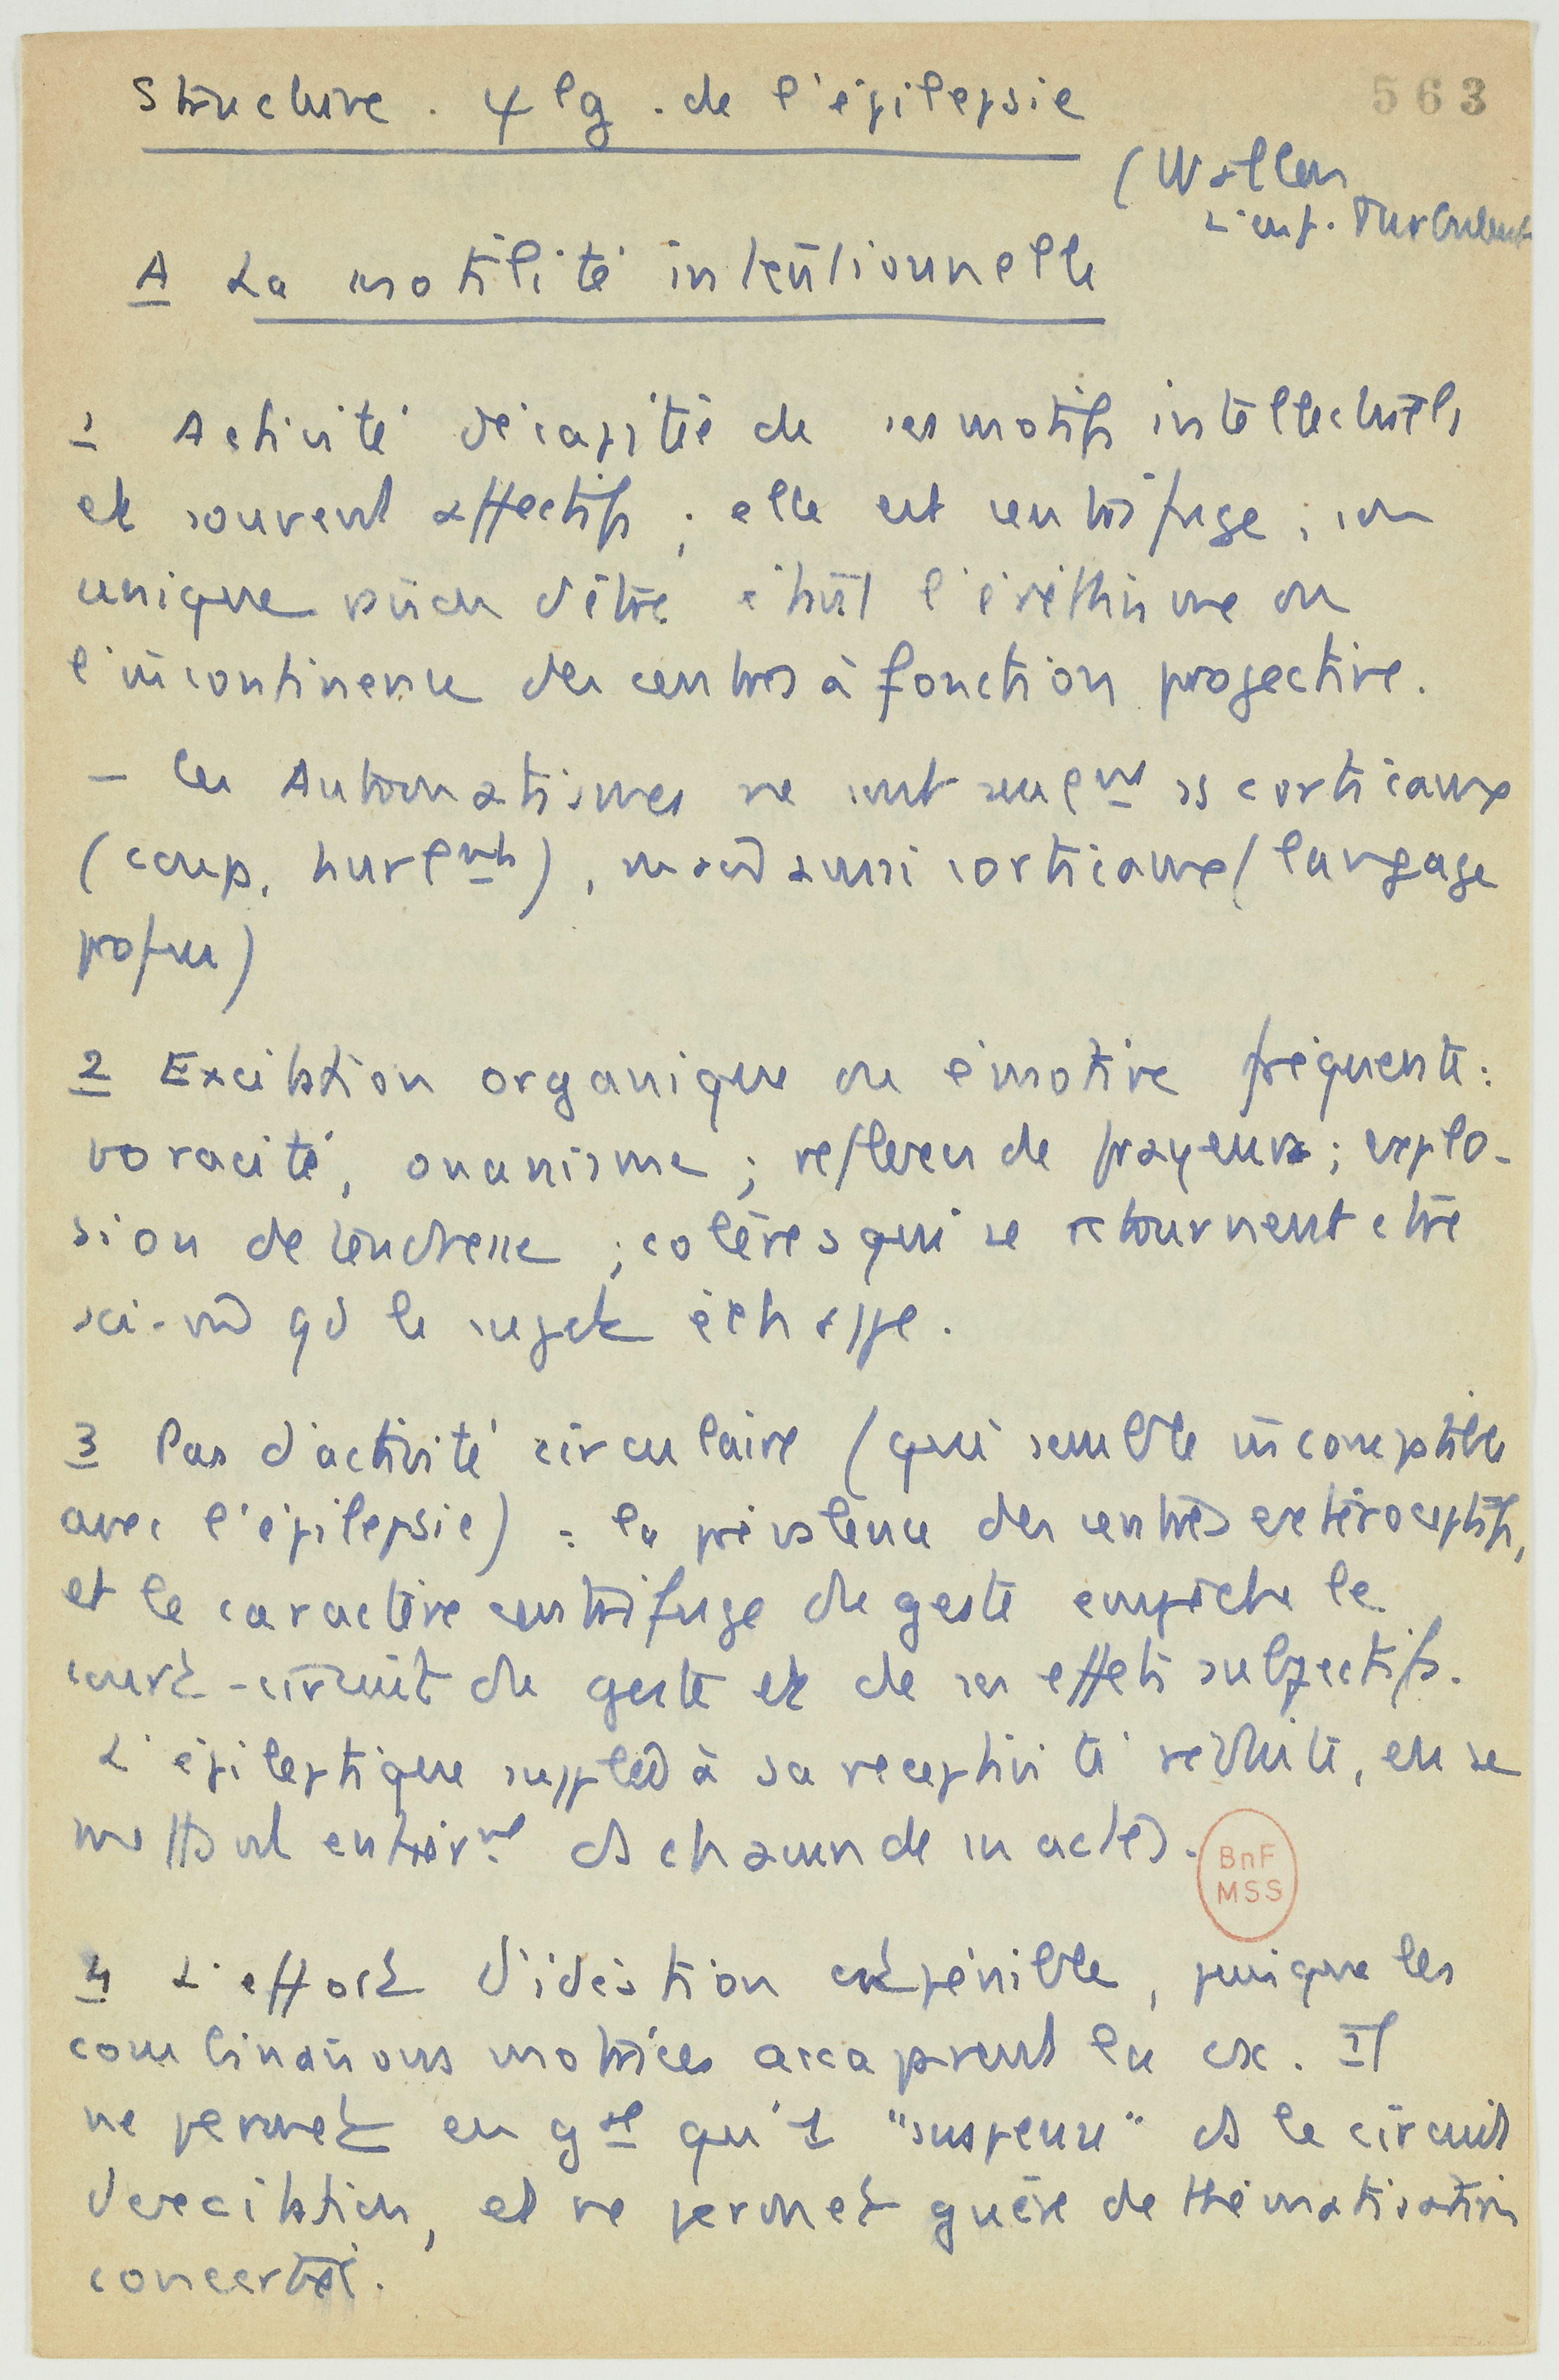 Structure . ψlg . de l'épilepsie
563
(Wallon
L'enf. Turbulent
A La motilité intentionnelle
1 Activité décapitée de ses motifs intellectuels
et souvent affectifs ; elle est centrifuge ; son
unique raison d'être étant l'éréthisme ou
l'incontinence des centres à fonction projective.
- Les Automatismes ne sont seulemt ss corticaux
(coups, hurlemts), mais aussi corticaux (langage
profus)
2 Excitation organique ou émotive fréquente :
voracité, onanisme ; réflexes de frayeurs ; explo-
sion de tendresse ; colères qui se retournent ctre
soi-m̂ qd le sujet échappe.
3 Pas d'activité circulaire (qui semble incomptible
avec l'épilepsie) : la prévalence des centres extéroceptifs,
et le caractère centrifuge du geste empêche le
court-circuit du geste et de ses effets subjectifs.
L'épileptique supplée à sa réceptivité réduite, en se
mettant entièrmt ds chacun de ses actes.
BnF
MSS
4 L'effort d'idéation est pénible, puisque les
combinaisons motrices accaprent la csc. Il
ne permet en gal qu'1 "suspens" ds le circuit
d'excitation, et ne permet guère de thématisation
concertée.